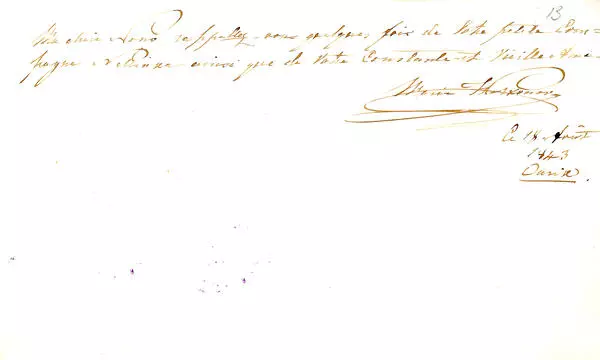 13
Ma chère Nono rappellez-vous quelques fois de Votre petite Com=
pagne ainsi que de Votre Constante et Vieille Amie
Marie
Ce 18 Août
1843